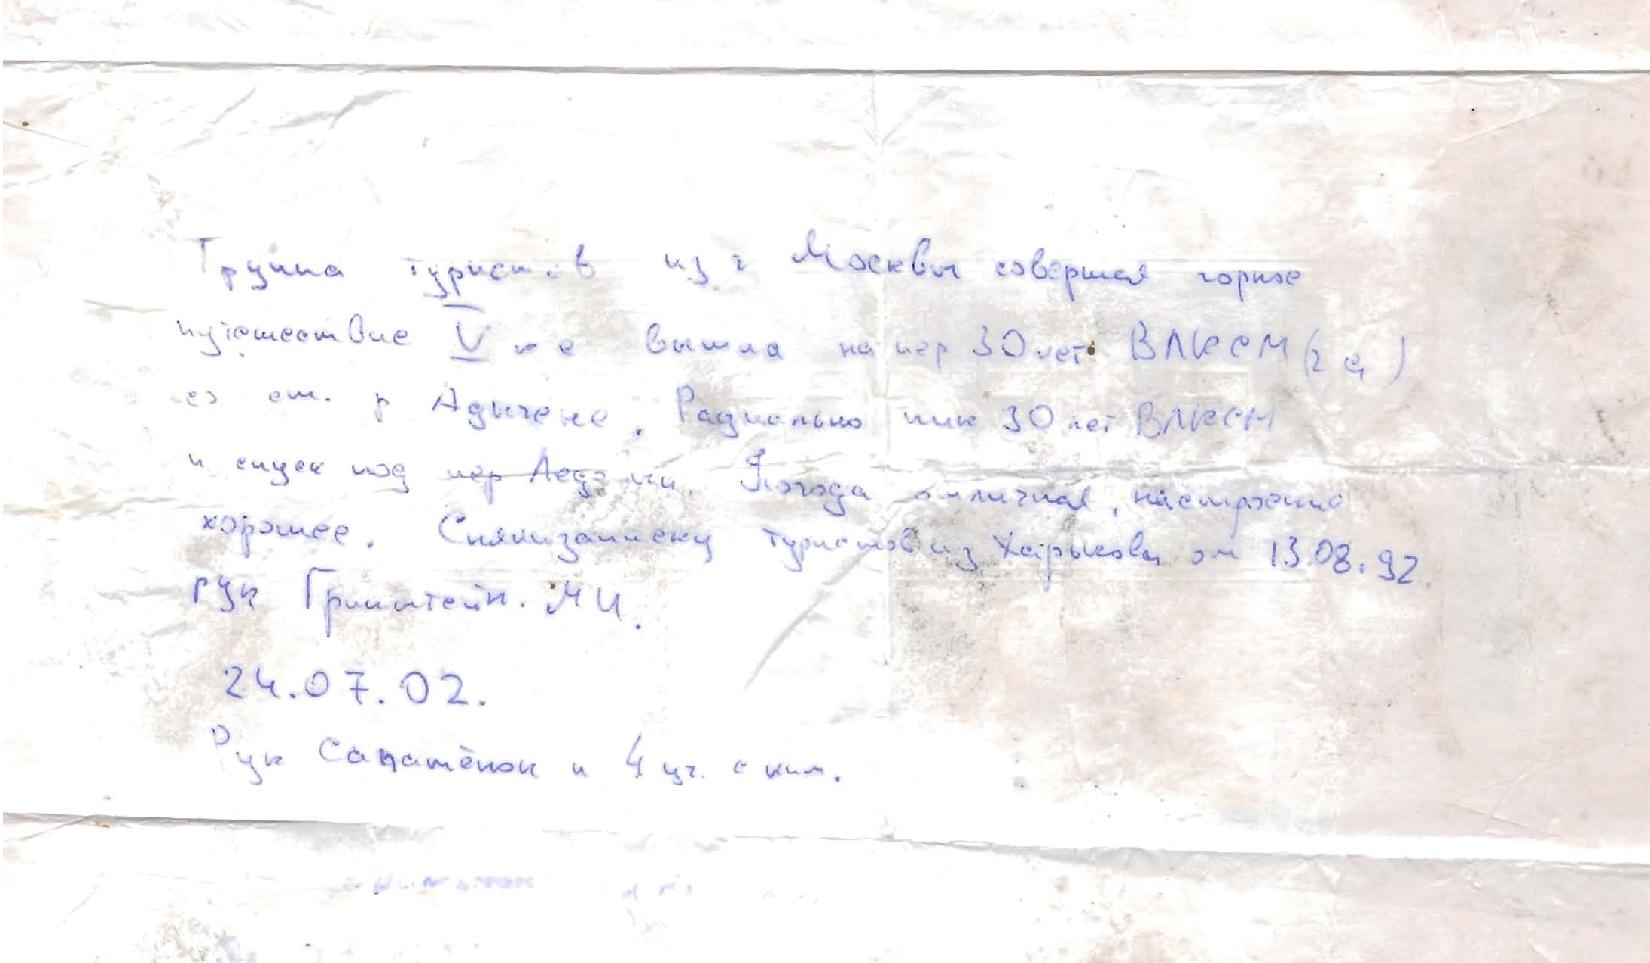 Группа туристов из г Москвы совершая горное
путешествие V к с вышла на пер 30 лет ВЛКСМ (2
ст. р Адычене. Радиально пик 30 лет ВЛКСМ
и спуск под пер Ледо Погода отличная, настроение
хорошее. Сняли записку туристов из Харькова от 13.08.92.
рук Гринштейн. МИ.
24.07.02.
Рук Сапатёнок и 4 уч. с ним.